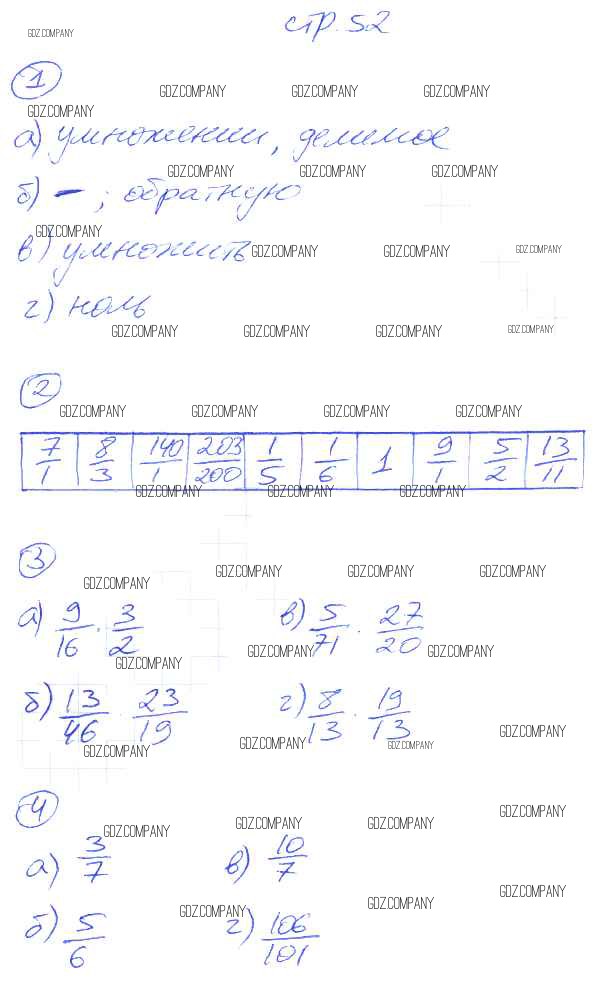 стр. 52
GDZ.COMPANY
1
GDZ.COMPANY GDZ.COMPANY GDZ.COMPANY
GDZ.COMPANY
а) умножении, делимое
GDZ.COMPANY GDZ.COMPANY GDZ.COMPANY
б) – ; обратную
GDZ.COMPANY
в) умножить
GDZ.COMPANY GDZ.COMPANY GDZ.COMPANY
г) ноль
GDZ.COMPANY GDZ.COMPANY GDZ.COMPANY GDZ.COMPANY
2
GDZ.COMPANY GDZ.COMPANY GDZ.COMPANY GDZ.COMPANY
7/1 8/3 140/1 203/200 1/5 1/6 1 9/1 5/2 13/11
GDZ.COMPANY GDZ.COMPANY GDZ.COMPANY
3
GDZ.COMPANY GDZ.COMPANY GDZ.COMPANY GDZ.COMPANY
а) 9/16 · 3/2 в) 5/71 · 27/20
GDZ.COMPANY GDZ.COMPANY GDZ.COMPANY
б) 13/46 · 23/19 г) 8/13 · 19/13
GDZ.COMPANY GDZ.COMPANY GDZ.COMPANY GDZ.COMPANY
4
GDZ.COMPANY GDZ.COMPANY GDZ.COMPANY GDZ.COMPANY
а) 3/7 в) 10/7
GDZ.COMPANY GDZ.COMPANY GDZ.COMPANY
б) 5/6 г) 106/101